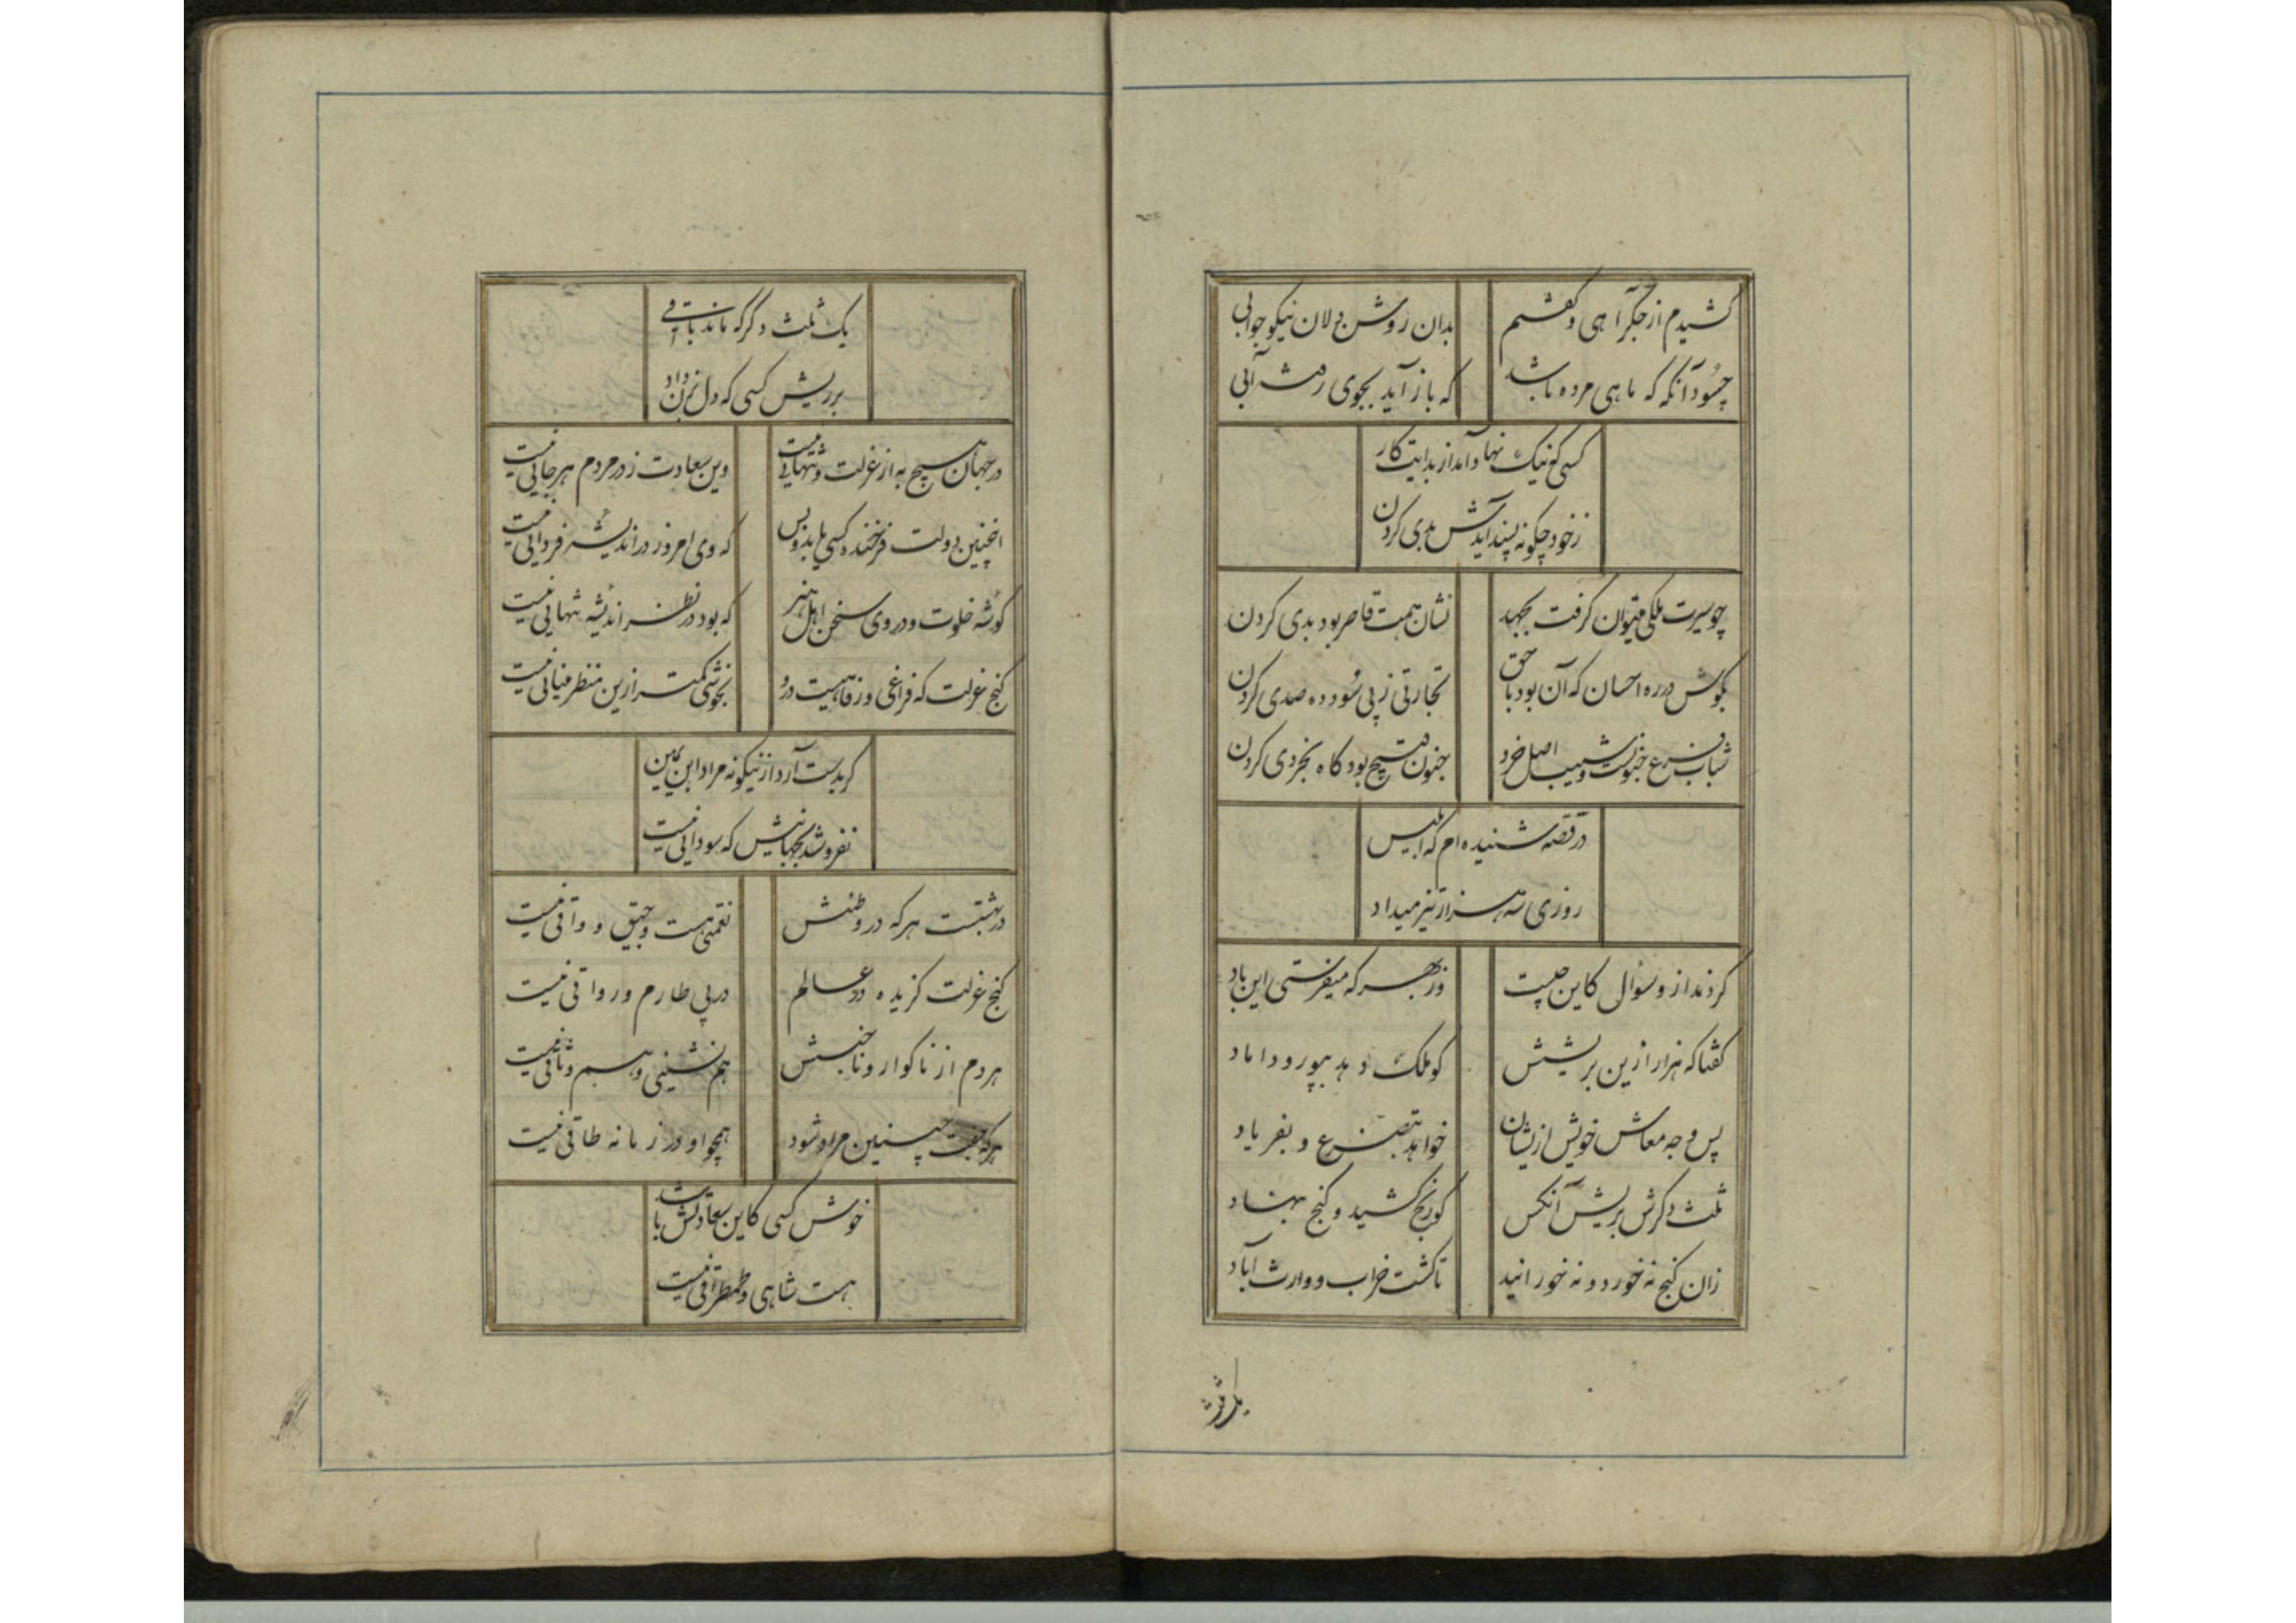 کشیدم از جگر آهی و گفتم
بدان روشن دلان نیکو جوابی
چسود آنگه که ماهی مرده باشد
که باز آید بجوی رفته آبی
کسی که نیک نهاد آمد از بدایت کار
ز خود چگونه پسند آیدش بدی کردن
چو سیرت ملکی میتوان گرفت بجهد
نشان همت قاصر بود بدی کردن
بکوش در ره احسان که آن بود با حق
تجارتی ز پی سود ده صدی کردن
شباب فرع جنونست و شیب اصل خرد
جنون قبیح بود گاه بخردی کردن
در قصه شنیده ام که ابلیس
روزی سه هزار تیز میداد
کردند ازو سؤال کاین چیست
وز بهر که میفرستی این باد
گفتا که هزار ازین بریشش
کو ملک دهد بپور و داماد
پس وجه معاش خویش ازیشان
خواهد بتضرع و بفریاد
ثلث دگرش بریش آنکس
کو رنج کشید و گنج بنهاد
زان گنج نه خورد و نه خورانید
تا گشت خراب و وارث آباد
یک ثلث
یک ثلث دگر که ماند باقی
بر ریش کسی که دل بزن داد
در جهان هیچ به از عزلت و تنهایی نیست
وین سعادت ز در مردم هر جایی نیست
اینچنین دولت فرخنده کسی یابد و بس
که وی امروز در اندیشه فردایی نیست
گوشه خلوت و در وی سخن اهل هنر
که بود در نظر اندیشه تنهایی نیست
کنج عزلت که فراغی و رفاهیست درو
بخوشی کمتر ازین منظر مینایی نیست
گر بدست آرد ازینگونه مراد ابن یمین
نفروشد بجهانیش که سودایی نیست
در بهشتست هرکه در وطنش
نغمتی هست و جیق و واقی نیست
کنج عزلت گزیده در عالم
در پی طارم و رواقی نیست
هر دم از ناگوار و ناجنسش
هم نشینی و هم وثاقی نیست
هرکه جفت چنین مراد شود
همچو او در زمانه طاقی نیست
خوش کسی کاین سعادتش باشد
هست شاهی و طمطراقی نیست